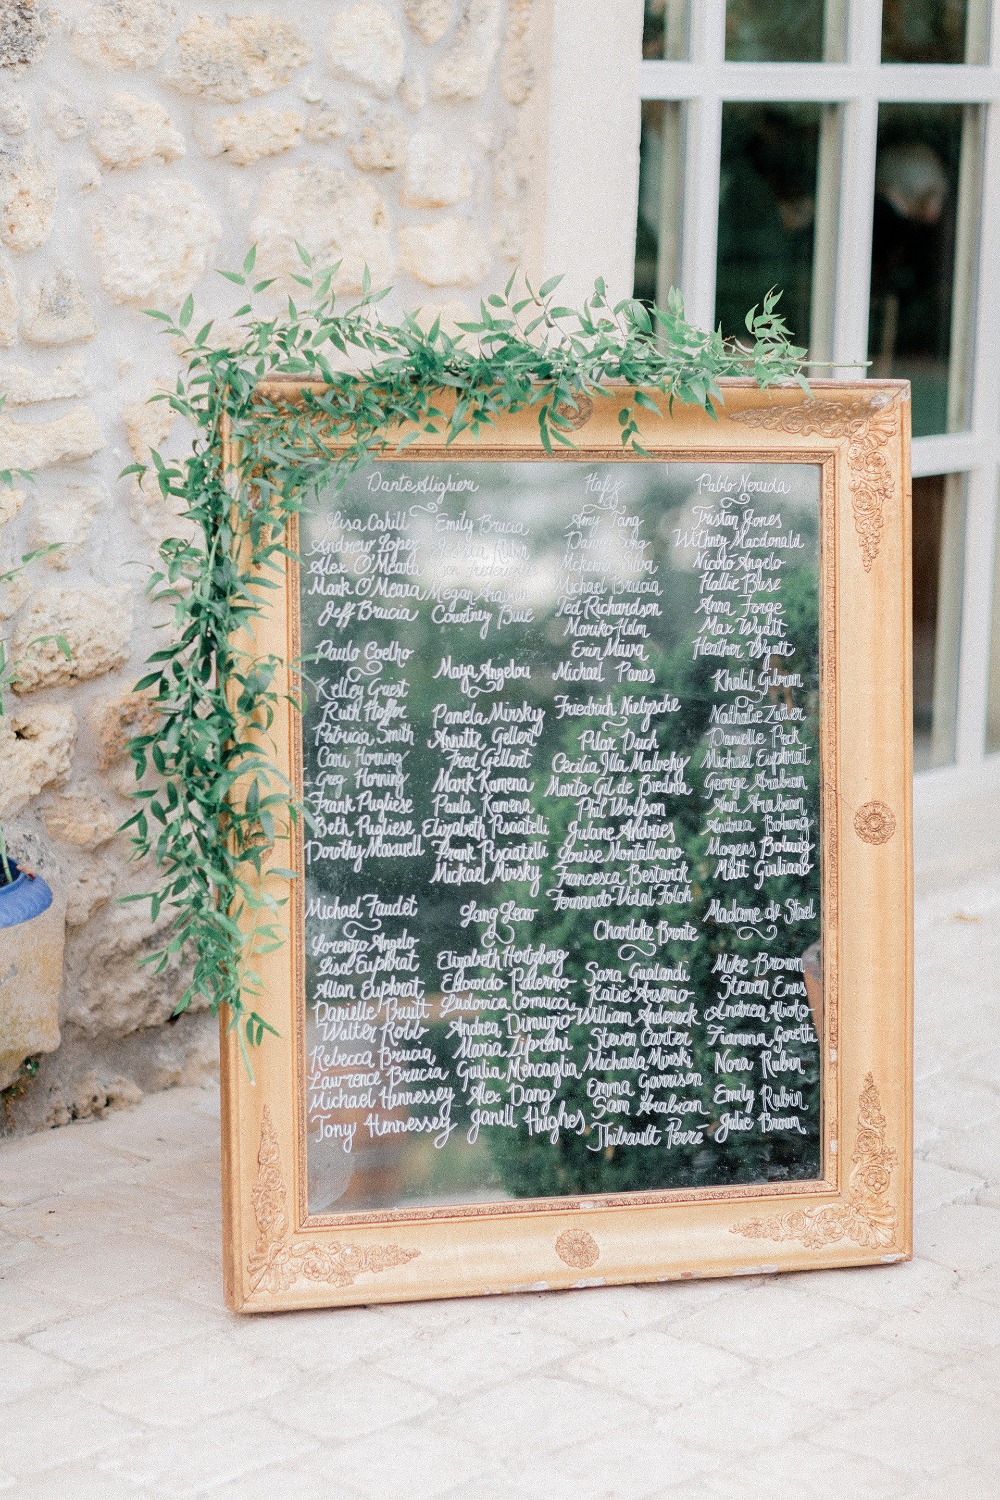 Dante Alighieri
Lisa Cahill
Andrew Lopez
Alex O'Meara
Mark O'Meara
Jeff Brucia
Emily Brucia
Rubin
Megan
Courtney Buie
Paulo Coelho
Kelley Guest
Ruth Hoffer
Patricia Smith
Cari Horning
Greg Horning
Frank Pugliese
Beth Pugliese
Dorothy Maxwell
Michael Faudet
Lorenzo Angelo
Lisa Euphrat
Allan Euphrat
Danielle Bautt
Walter Robb
Rebecca Brucia
Lawrence Brucia
Michael Hennessey
Tony Hennessey
Maya Angelou
Pamela Mirsky
Annette Gellert
Fred Gellert
Mark Kamena
Paula Kamena
Elizabeth Pisciatelli
Frank Pisciatelli
Mickael Mirsky
Lang Leav
Elizabeth Hertzberg
Edoardo Palermo
Ludovica Comucci
Andrea Dimuzio
Maria Zibrani
Giulia Mencaglia
Alex Dang
Janell Hughes
Hafiz
Amy Tang
Silva
Michael Brucia
Ted Richardson
Mariko Helm
Erin Miwa
Michael Panas
Friedrich Nietzsche
Pilar Duch
Cecilia Illa Malvehy
Marta Gil de Biedma
Phil Wolfson
Julane Andries
Louise Montalbano
Francesca Bestwick
Fernando Vidal Folch
Charlotte Bronte
Sara Gualandi
Katie Arsenio
William Andereck
Steven Carter
Michaela Mirski
Emma Garrison
Sam Arabian
Thibault Perre
Pablo Neruda
Tristan Jones
Withney Macdonald
Nicolo Angelo
Hallie Buse
Anna Forge
Max Wyatt
Heather Wyatt
Khalil Gibran
Nathalie Zutter
Danielle Peck
Michael Euphrat
George Arabian
Ann Arabian
Andrea Boburg
Mogens Boburg
Matt Giuliano
Madame de Stael
Mike Brown
Steven Enns
Andrea Alioto
Fiamma Goretti
Nora Rubin
Emily Rubin
Julie Brown